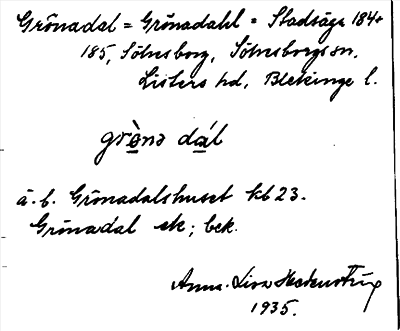 Grönadal = Grönadahl = Stadsäga 184+
185, Sölvesborg, Sölvesborgs sn.
Listers hd, Blekinge l.
grò̱nə dá̱l
ä. b. Grönadalshuset kb 23.
Grönadal ek; bek.
Anna-Lisa
1935.